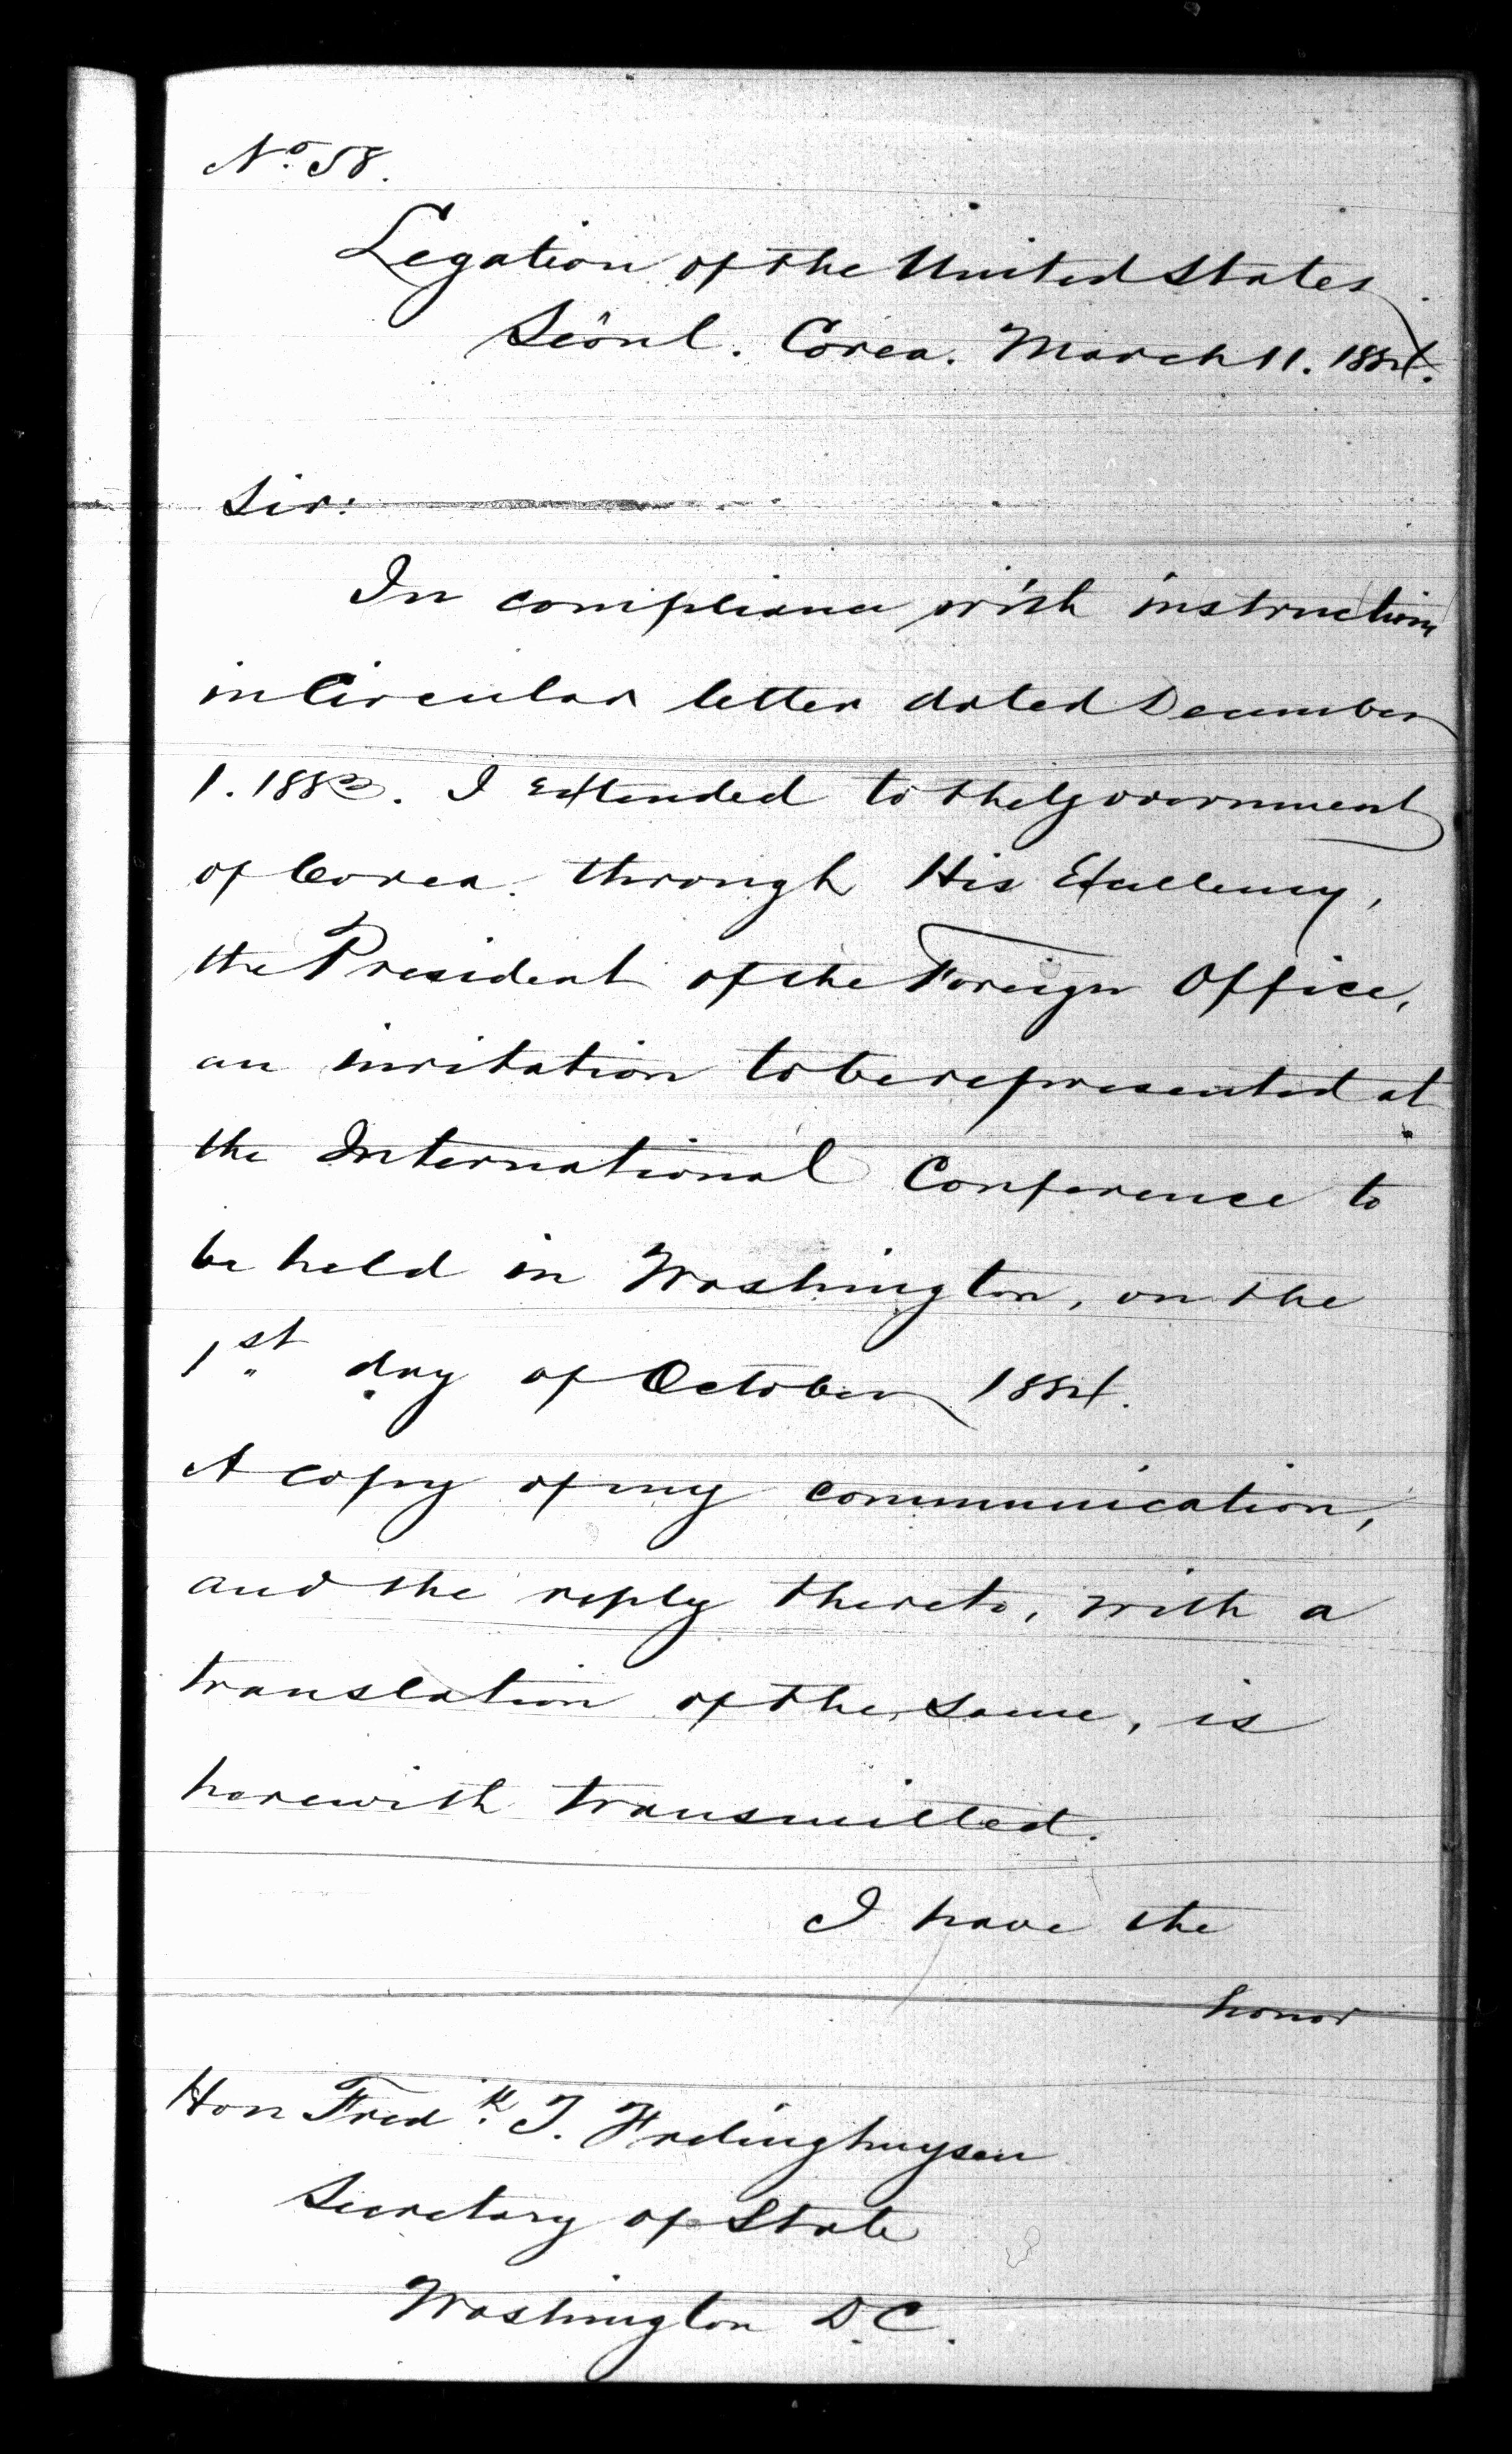 No. 58.
Legation of the United States
Sèoul. Corea. March 11. 1884.
Sir:
In compliance with instructions
in Circular letter dated December
1. 1883. I extended to the Government
of Corea. through His Excellency,
the President of the Foreign Office,
an invitation to be represented at
the International Conference to
be held in Washington, on the
1st day of October 1884.
A copy of my communication,
and the reply thereto, with a
translation of the same, is
herewith transmitted.
I have the
honor
Hon Fredk. T. Frelinghuysen
Secretary of State
Washington D.C.